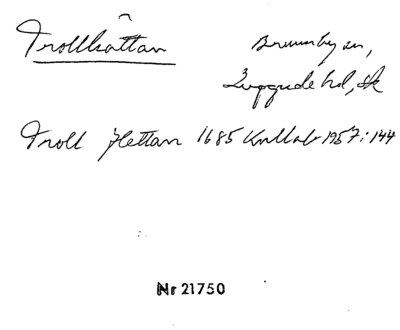 Trollhättan Brunnby sn,
Luggude hd, Sk
Troll Hettan 1685 Kullab 1957:144
Nr 21750